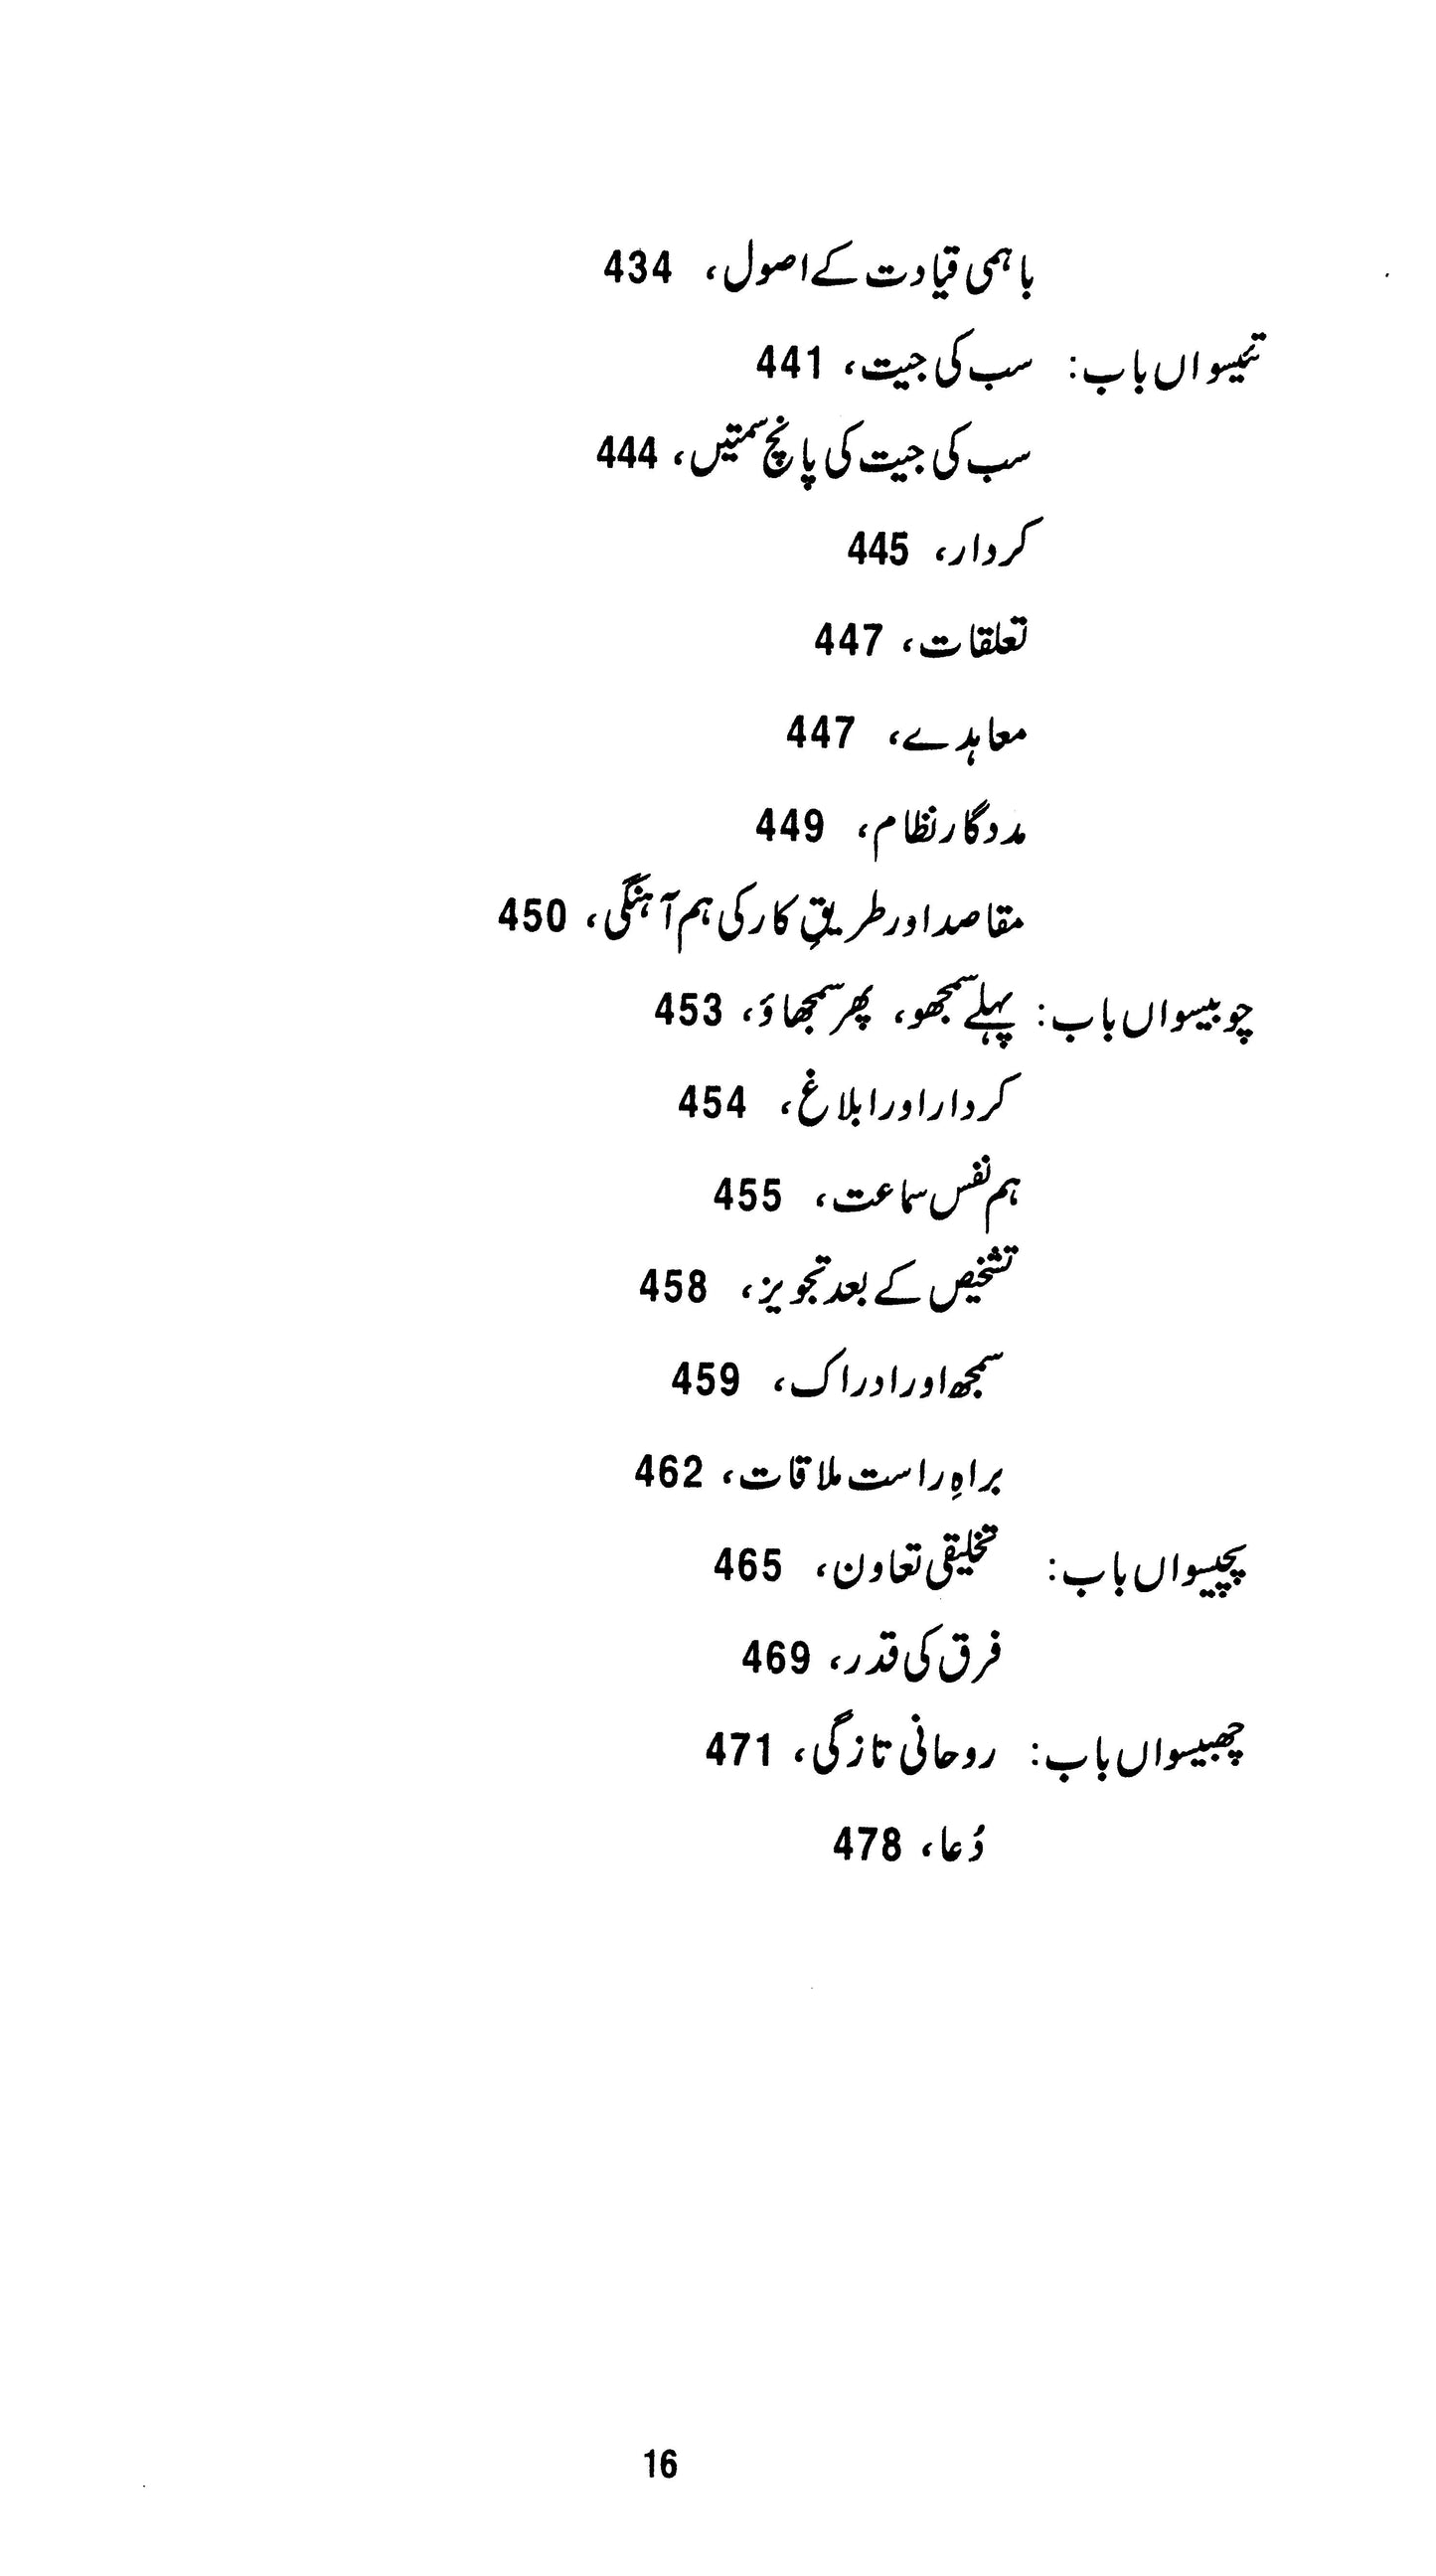 باہمی قیادت کے اصول، 434
تیئسواں باب: سب کی جیت، 441
سب کی جیت کی پانچ سمتیں، 444
کردار، 445
تعلقات، 447
معاہدے، 447
مددگار نظام، 449
مقاصد اور طریقِ کار کی ہم آہنگی، 450
چوبیسواں باب: پہلے سمجھو، پھر سمجھاؤ، 453
کردار اور ابلاغ، 454
ہم نفس سماعت، 455
تشخیص کے بعد تجویز، 458
سمجھ اور ادراک، 459
براہِ راست ملاقات، 462
پچیسواں باب: تخلیقی تعاون، 465
فرق کی قدر، 469
چھبیسواں باب: روحانی تازگی، 471
دُعا، 478
16